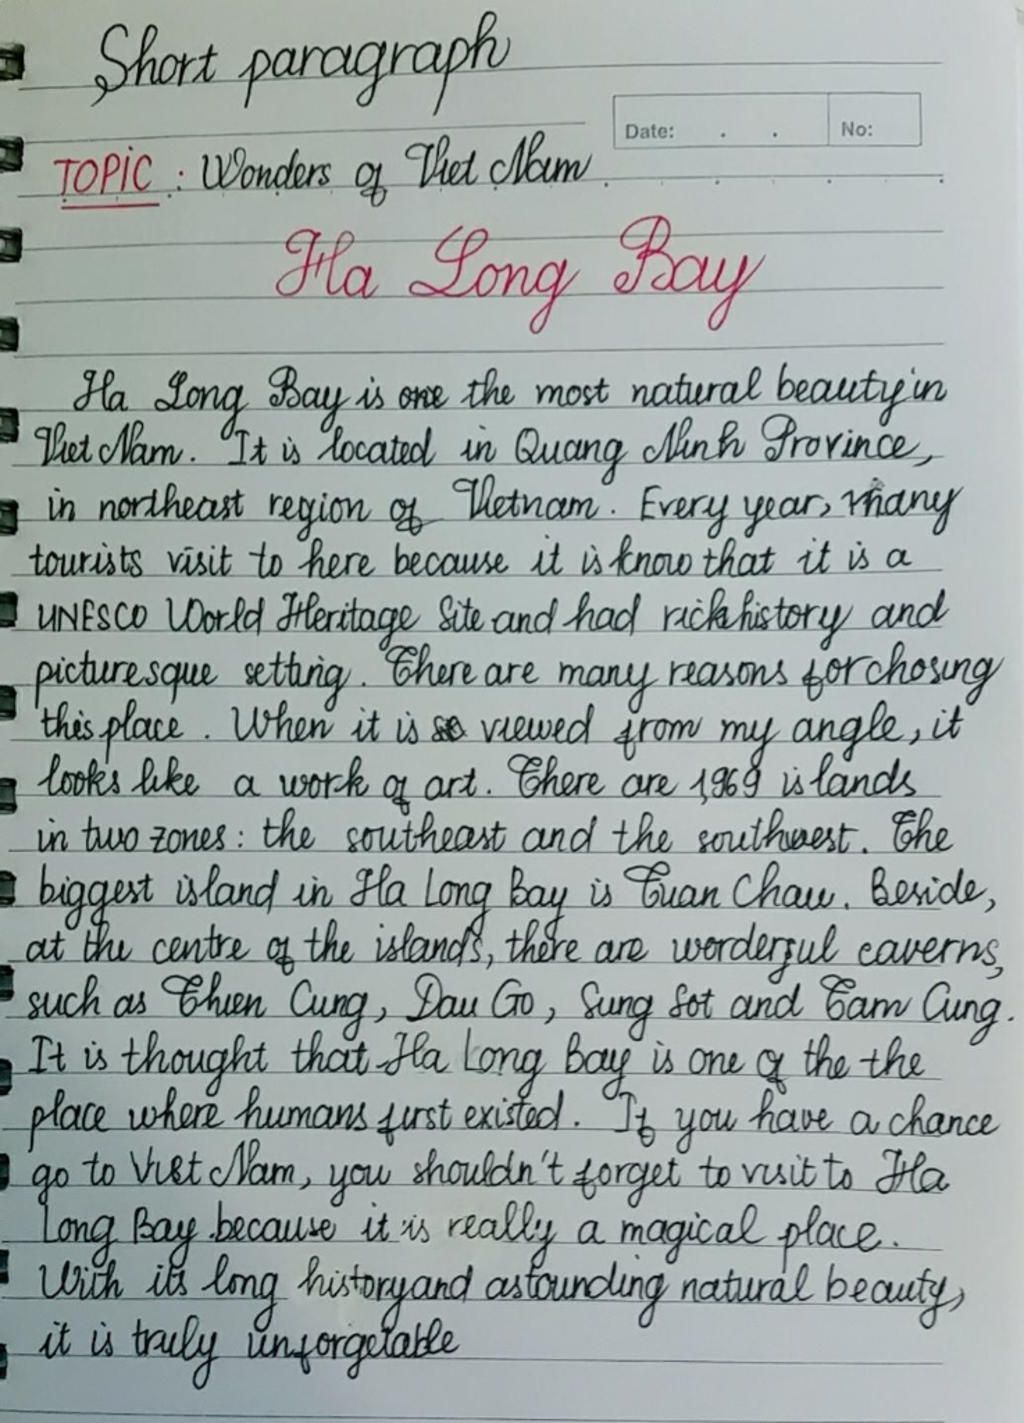 Short paragraph
Date: . . No:
TOPIC : Wonders of Viet Nam
Ha Long Bay
Ha Long Bay is one the most natural beauty in
Viet Nam. It is located in Quang Ninh Province,
in northeast region of Vietnam. Every year, many
tourists visit to here because it is know that it is a
UNESCO World Heritage Site and had rich history and
picturesque setting. There are many reasons for chosing
this place. When it is viewed from my angle, it
looks like a work of art. There are 1,969 islands
in two zones: the southeast and the southwest. The
biggest island in Ha Long Bay is Tuan Chau. Beside,
at the centre of the islands, there are worderful caverns,
such as Thien Cung, Dau Go, Sung Sot and Tam Cung.
It is thought that Ha Long Bay is one of the the
place where humans first existed. If you have a chance
go to Viet Nam, you shouldn't forget to visit to Ha
Long Bay because it is really a magical place.
With its long history and astounding natural beauty,
it is truly unforgetable